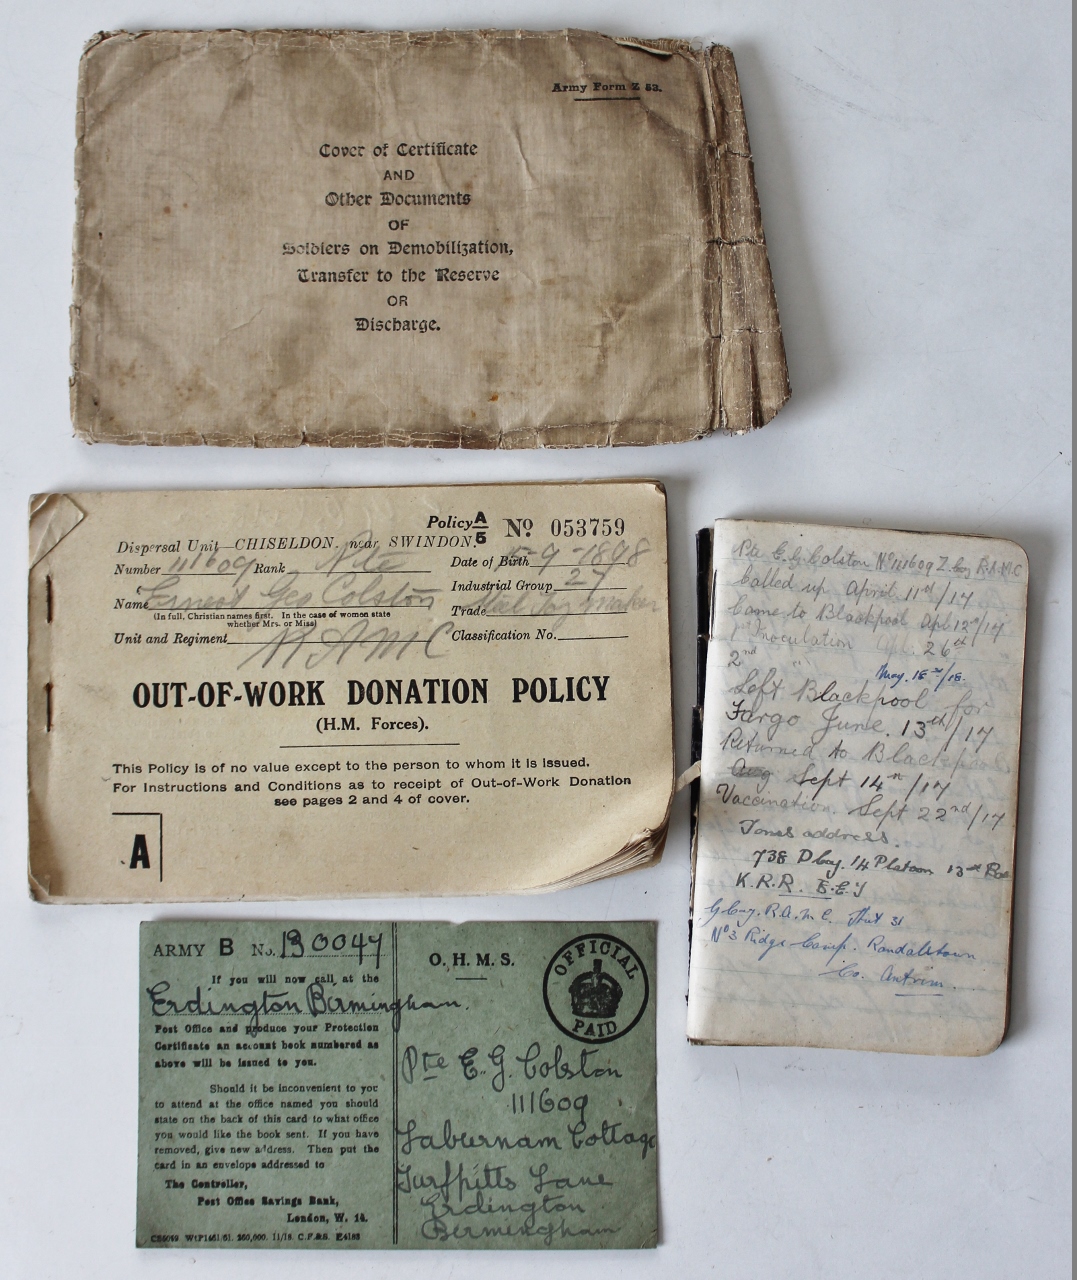 Army Form Z 53.
Cover of Certificate
AND
Other Documents
OF
Soldiers on Demobilization,
Transfer to the Reserve
OR
Discharge.
Policy A/5 No 053759
Dispersal Unit—CHISELDON, near SWINDON.
Number 111609 Rank Pte
Date of Birth 5-9-1898
Industrial Group 27
Name Ernest Geo Colston
Trade
(In full, Christian names first. In the case of women state
whether Mrs. or Miss)
Unit and Regiment RAMC Classification No.
OUT-OF-WORK DONATION POLICY
(H.M. Forces).
This Policy is of no value except to the person to whom it is issued.
For Instructions and Conditions as to receipt of Out-of-Work Donation
see pages 2 and 4 of cover.
A
Pte E.G. Colston No 111609 Z Coy R.A.M.C
Called up April 11th/17
Came to Blackpool Apl 12th/17
1st Inoculation Apl. 26th
2nd " May. 18th/18.
Left Blackpool for
Fargo June. 13th/17
Returned to Blackpool
Sept 14th/17
Vaccination. Sept 22nd/17
Toms address.
738 D Coy. 14 Platoon 13th
K.R.R. B.E.F
G Coy. R.A.M.C. Hut 31
No 3 Ridge Camp. Randalstown
Co. Antrim.
ARMY B No. 130047
If you will now call at the
Erdington Birmingham.
Post Office and produce your Protection
Certificate an account book numbered as
above will be issued to you.
Should it be inconvenient to you
to attend at the office named you should
state on the back of this card to what office
you would like the book sent. If you have
removed, give new address. Then put the
card in an envelope addressed to
The Controller,
Post Office Savings Bank,
London, W. 14.
O.H.M.S.
OFFICIAL
PAID
Pte E.G. Colston
111609
Laburnam Cottage
Turfpitts Lane
Erdington
Birmingham